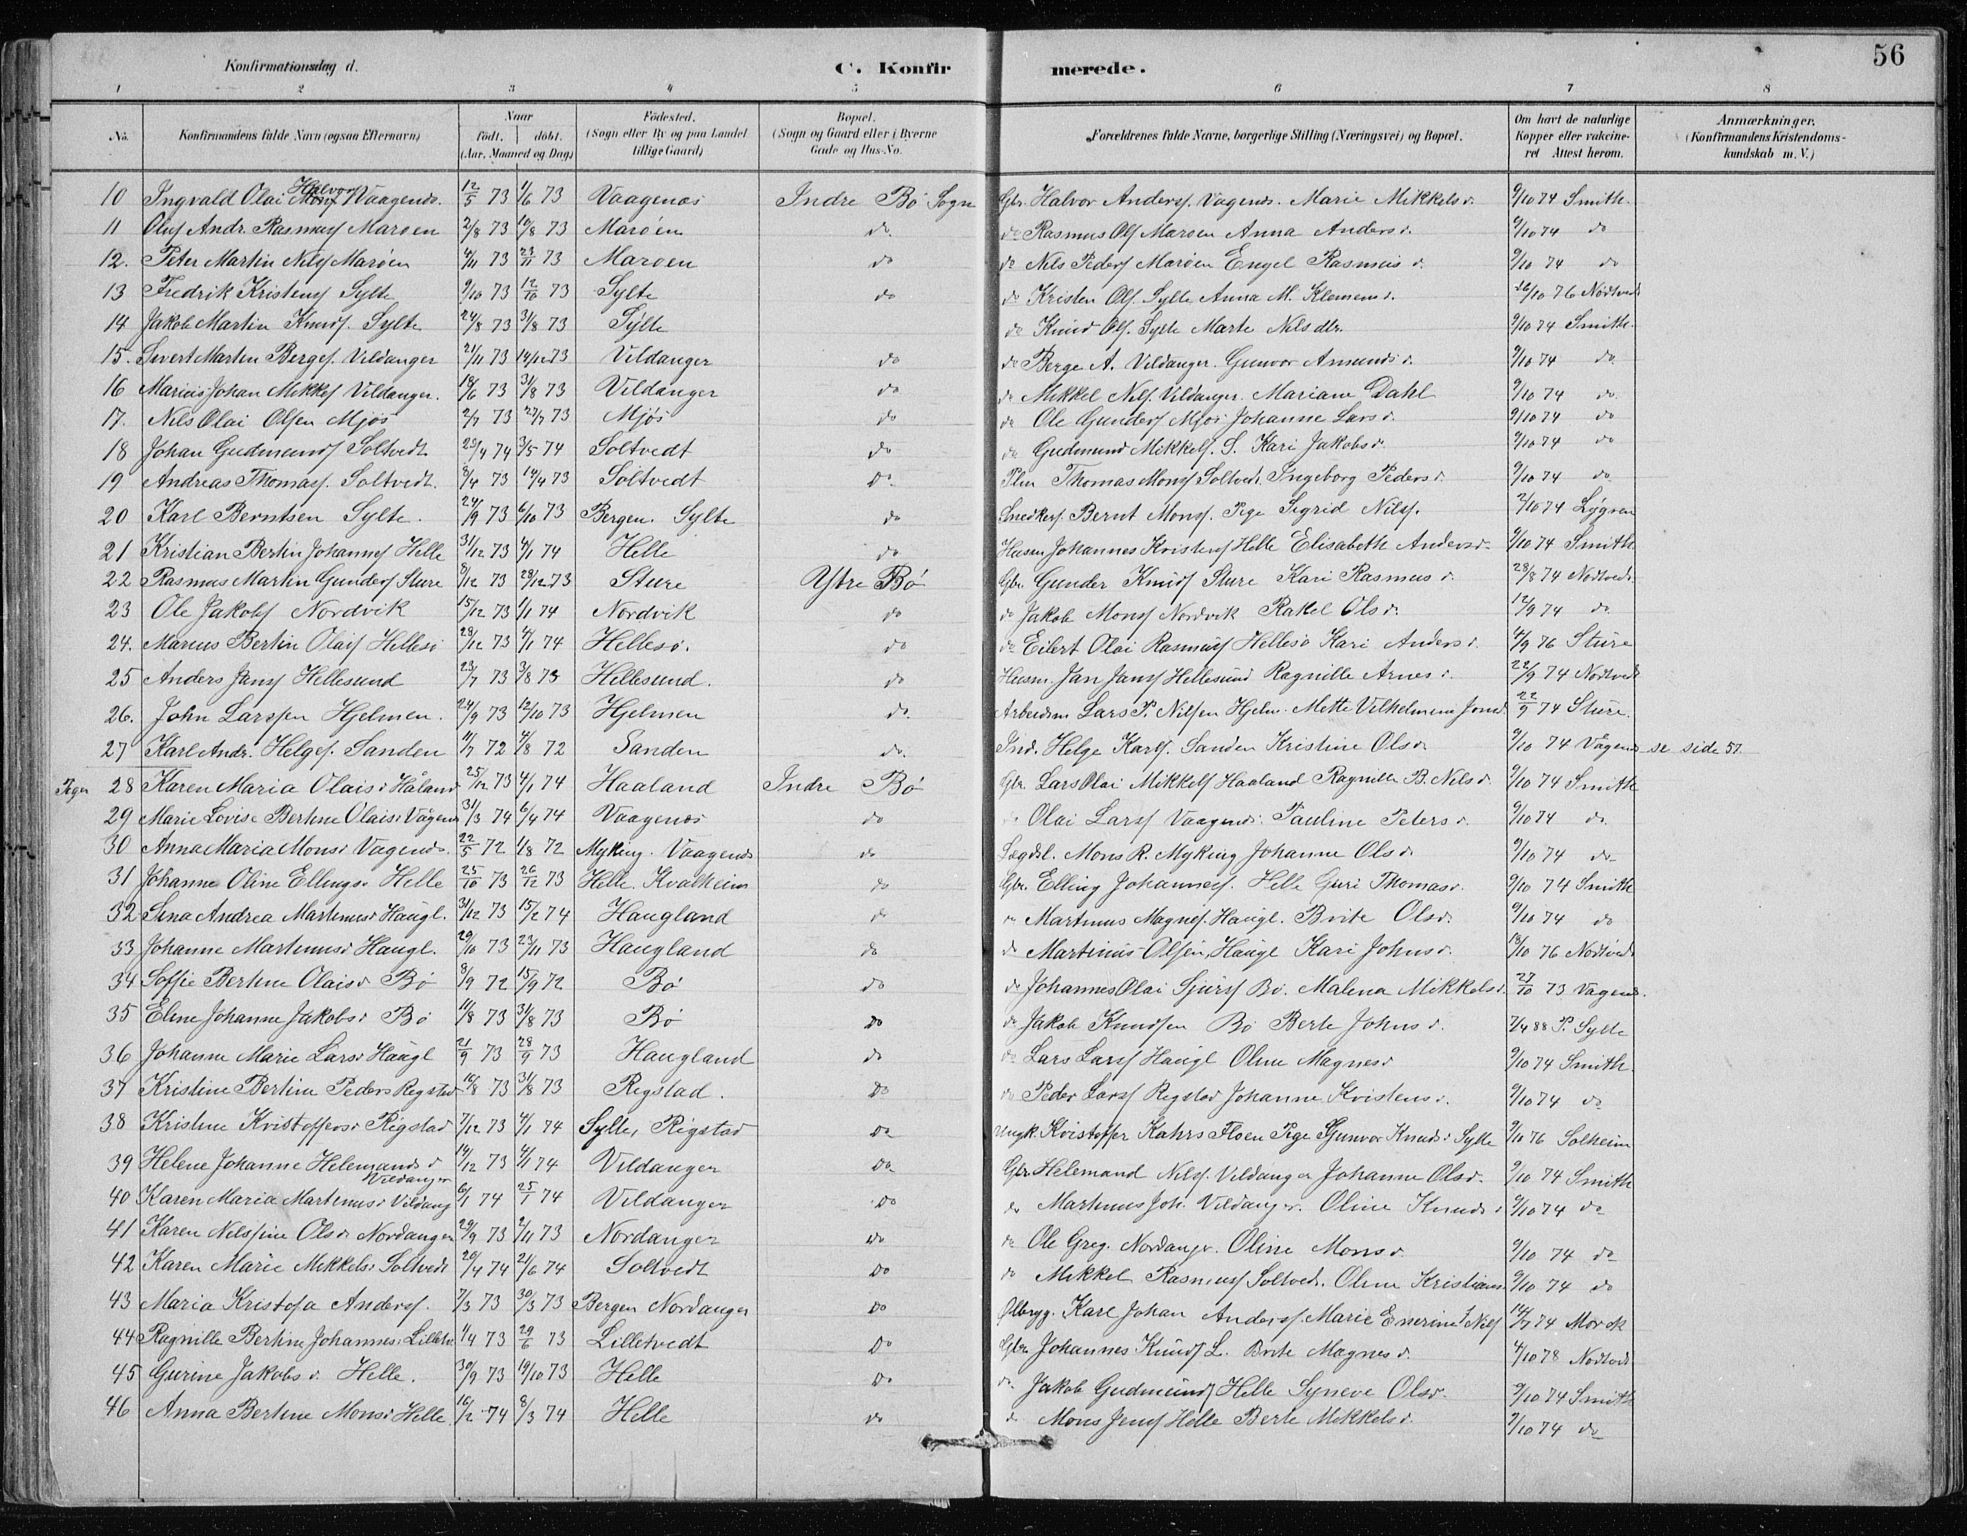 56
Konfirmationsdag d. C. Konfirmerede.
1 2 3 4 5 6 7 8
No. Konfirmandens fulde Navn (ogsaa Efternavn) Naar født. døbt. (Aar, Maaned og Dag) Fødested. (Sogn eller By og paa Landet tillige Gaard) Bopæl. (Sogn og Gaard eller i Byerne Gade og Hus-No. Forældrenes fulde Navne, borgerlige Stilling (Næringsvei) og Bopæl. Om havt de naturlige Kopper eller vaccineret Attest herom. Anmærkninger. (Konfirmandens Kristendomskundskab m. V.)
10 Ingvald Olai Halvors Vaagenes. 12/5 73 1/6 73 Vaagenes Indre Bø Sogn Gbr. Halvor Anders. Vagenes. Marie Mikkelsd. 9/10 74 Smith.
11 Oluf Andr. Rasmus Marøen 2/8 73 10/8 73 Marøen do do Rasmus Ols Marøen Anna Andersd. 9/10 74 do
12. Peter Martin Nils Marøen 4/11 73 23/11 73 Marøen do do Nils Peders Marøen Engel Rasmusd. 9/10 74 do
13 Fredrik Kristens Sylte 9/10 73 12/10 73 Sylte do do Kristen Ols. Sylte Anna M. Klemensd. 26/10 76 Nødtvedt
14 Jakob Martin Knuds. Sylte 24/8 73 31/8 73 Sylte do do Knud Ols. Sylte Marte Nilsdtr. 9/10 74 Smith.
15. Sivert Martin Berges. Vildanger 21/11 73 14/12 73 Vildanger do do Berge A. Vildanger. Gunvor Amundsd. 9/10 74 do
16 Marius Johan Mikkels Vildanger. 18/6 73 31/8 73 Vildanger do do Mikkel Nils. Vildanger. Mariane Dahl 9/10 74 do
17. Nils Olai Olsen Mjøs 2/7 73 27/7 73 Mjøs do do Ole Gunders Mjøs Johanne Larsd. 9/10 74 do
18 Johan Gudmunds Soltvedt 23/4 74 3/5 74 Soltvedt do do Gudmund Mikkels. S. Kari Jakobsd. 9/10 74 do
19 Andreas Thomas. Soltvedt. 8/4 73 14/4 73 Soltvedt Do. Thomas Mons Soltvedt. Ingeborg Pedersd. 9/10 74 do
20 Karl Berntsen Sylte. 24/9 73 6/10 73 Bergen. Sylte do Snedkers. Bernt Mons. Pige Sigrid Nils. 2/10 74 Løgren
21 Kristian Bertin Johannes Helle 31/12 73 4/1 74 Helle do Husm Johannes Kristens Helle Elisabeth Andersd. 9/10 74 Smith
22 Rasmus Martin Gunders Sture 8/12 73 28/12 73 Sture Ytre Bø Gbr. Gunder Knuds Sture Kari Rasmusd. 28/8 74 Nodtvedt.
23 Ole Jakobs Nordvik 15/12 73 1/1 74 Nordvik do do Jakob Mons Nordvik Rakel Olsd. 12/9 74 do
24. Marius Bertin Olais Hellesø 28/12 73 4/1 74 Hellesø. do do Eilert Olai Rasmus Hellesø Kari Andersd. 4/9 76 Sture
25 Anders Jans Hellesund 23/7 73 3/8 73 Hellesund. do Husm. Jan Jans Hellesund Ragnille Arnesd. 22/9 74 Nodtvedt
26. John Larssen Hjelmen. 24/9 73 12/10 73 Hjelmen do. Arbeidsm Lars P. Nilsen Hjelm. Mette Vilhelmine Jonsd. 22/9 74 Sture.
27 Karl Andr. Helges. Sanden 11/7 72 4/8 72 Sanden do. Ind. Helge Karls. Sanden Kristine Olsd. 9/10 74 Vågenes se side 57
Piger 28 Karen Maria Olaisd Håland 25/12 73 4/1 74 Haaland Indre Bø Gbr. Lars Olai Mikkels Haaland Ragnille B. Nilsd. 9/10 74 Smith
29 Marie Lovise Bertine Olaisd Vågenes 31/3 74 6/4 74 Vaagenes do Olai Lars Vaagenes. Pauline Petersd. 9/10 74 do.
30 Anna Maria Monsd Vagenes. 22/5 72 1/8 72 Myking. Vaagenes do Lægdsl. Mons R. Myking Johanne Olsd. 9/10 74 do
31 Johanne Oline Ellingsd Helle 25/10 73 26/12 73 Helle. Kvalheim do Gbr. Elling Johannes. Helle Guri Thomasd. 9/10 74 Smith
32 Sina Andrea Martinusd Haugl. 31/12 73 15/2 74 Haugland do Martinus Magnes. Haugl. Brite Olsd. 9/10 74 do
33 Johanne Martinusd Haugl. 29/10 73 23/11 73 Haugland do do Martinus Olsen, Haugl Kari Johnsd. 18/10 76 Nodtvedt
34 Soffie Bertine Olaisd Bø 8/9 72 15/9 72 Bø do do Johannes Olai Sjurs Bø. Malena Mikkelsd. 27/10 73 Vagenes.
35 Eline Johanne Jakobsd Bø 11/8 73 31/8 73 Bø do do Jakob Knudsen Bø Berte Johnsd. 7/4 88 P. Sylte
36 Johanne Marie Larsd Haugl 21/9 73 28/9 73 Haugland do do Lars Lars Haugl Oline Magnesd. 9/10 74 Smith.
37 Kristine Bertine Peders Rigstad 16/8 73 31/8 73 Rigstad. Do do Peder Lars Rigstad Johanne Kristensd. 9/10 74 do
38 Kristine Kristoffersd Rigstad 7/12 73 4/1 74 Sylte, Rigstad Do Ungk. Kristoffer Kahrs Floen Pige Gunvor Knudsd Sylte 9/10 76 Solheim
39 Helene Johanne Helemandsd Vildanger 14/12 73 4/1 74 Vildanger Do Gbr. Helemand Nils. Vildanger Johanne Olsd. 9/10 74 Smith
40 Karen Maria Martinusd Vildang 6/1 74 25/1 74 Vildanger Do do Martinus Joh. Vildanger. Oline Knudsd 9/10 74 do
41 Karen Nilssine Olsd. Nordanger 29/9 73 2/11 73 Nordanger do do Ole Greg. Nordangr. Oline Monsd. 9/10 74 do
42 Karen Marie Mikkelsd Soltvedt 20/4 74 21/6 74 Soltvedt Do do Mikkel Rasmus Soltved. Oline Kristians 9/10 74 do
43 Maria Kristofa Anders. 7/3 73 30/3 73 Bergen Nordanger Do Ølbryg. Karl Johan Anders Marie Enerine Nils 14/7 74 Morck
44 Ragnille Bertine Johannesd Lilletv. 1/4 73 29/6 73 Lilletvedt Do Gbr. Johannes Knuds L. Brite Magnesd. 4/10 78 Nodtvedt
45 Gurine Jakobsd. Helle. 30/9 73 19/10 73 Helle Do do. Jakob Gudmunds Helle Syneve Olsd. 9/10 74 Smith
46 Anna Bertine Monsd Helle 16/2 74 8/3 74 Helle do do Mons Jens Helle Berte Mikkelsd. 9/10 74 do